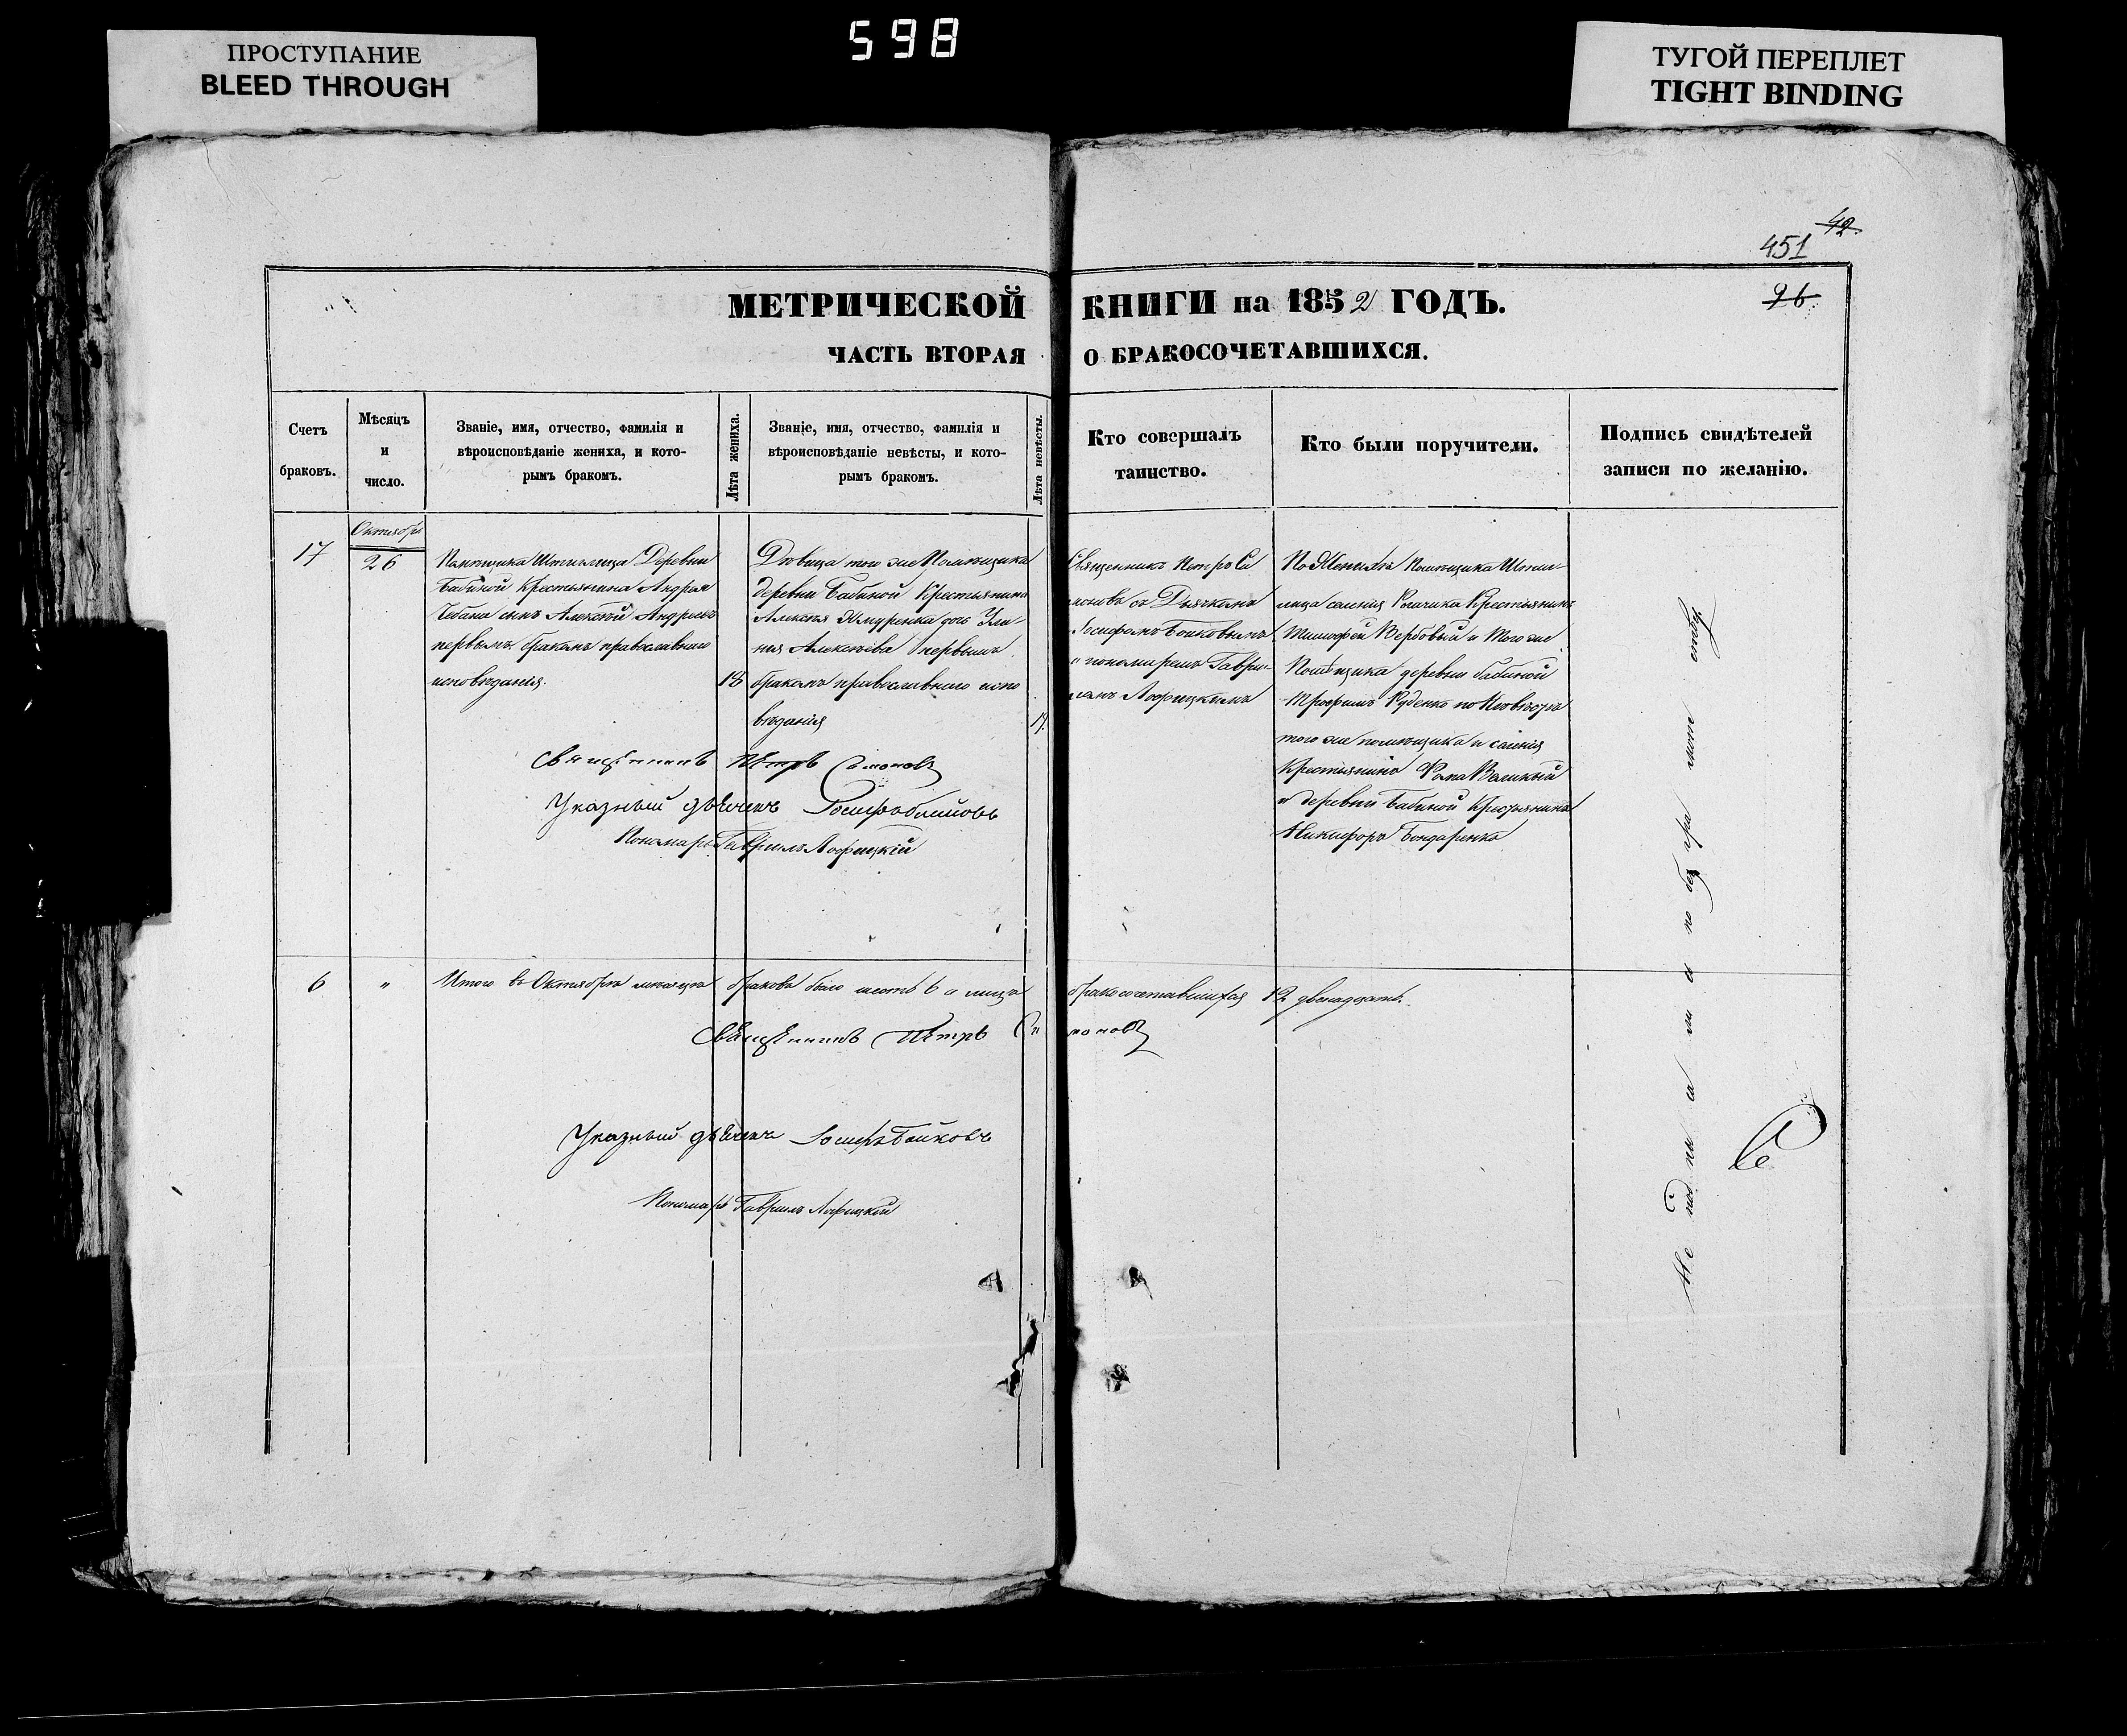 ПРОСТУПАНИЕ
BLEED THROUGH
598
ТУГОЙ ПЕРЕПЛЕТ
TIGHT BINDING
42.
451
96
МЕТРИЧЕСКОЙ КНИГИ на 1852 ГОДЪ.
ЧАСТЬ ВТОРАЯ О БРАКОСОЧЕТАВШИХСЯ.
Счетъ
браковъ.
Мѣсяцъ
и
число.
Званіе, имя, отчество, фамилія и
вѣроисповѣданіе жениха, и кото-
рымъ бракомъ.
Лѣта жениха.
Званіе, имя, отчество, фамилія и
вѣроисповѣданіе невѣсты, и кото-
рымъ бракомъ.
Лѣта невѣсты.
Кто совершалъ
таинство.
Кто были поручители.
Подпись свидѣтелей
записи по желанію.
17
Октябрь
26
Помѣщика Штиглица Деревни
Бабиной Крестьянина Андрея
Чебана сынъ Алексѣй Андреевъ
первымъ бракомъ православнаго
исповѣданія.
18
Дѣвица того же Помѣщика
деревни Бабиной Крестьянина
Алексѣя дочь Ули-
нія Алексѣева первымъ
бракомъ православнаго испо
вѣданія
17.
Священникъ Петръ Си
моновъ съ Дьячкомъ
Іосифомъ Бойковымъ
и пономаремъ Гаврі-
иломъ
По Женихѣ Помѣщика Штиг-
лица селенія Рогачика Крестьянинъ
Тимофей Вербовый и Того же
Помѣщика деревни Бабиной
Трофимъ Руденко по Невѣстѣ
того же помѣщика и селенія
Крестьянинъ Фома Великый
и деревни Бабиной Крестьянинъ
Никифоръ Бондаренко
Священникъ Петръ Симоновъ
Указный дьячекъ Іосифъ Бойковъ
Пономарь Гавріилъ
6 " Итого въ Октябрѣ мѣсяцѣ браковъ было шесть 6 а лицъ бракосочетавшихся 12 двенадцать.
Священникъ Петръ Симоновъ
Указный дьячекъ Іосифъ Бойковъ
Пономарь Гавріилъ
Не подписались по безграмотству